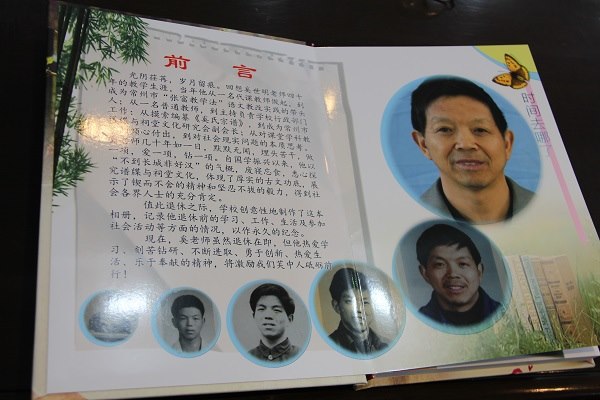 前 言
光阴荏苒,岁月留痕。回想奚世明老师四十
年的教学生涯,当年他从一名代课教师做起,到
成为常州市“张富教学法”语文教改实践的带头
人;从一名普通教师,到主持负责学校行政部门
工作;从摸索编纂《奚氏宗谱》,到成为常州市
谱牒与祠堂文化研究会副会长;从对课堂学科教
心付出,到对社会现实问题的本质思考。
师几十年如一日,默默无闻,埋头苦干,做
一项,爱一项,钻一项。自国学振兴以来,他以
“不到长城非好汉”的气概,废寝忘食,悉心探
究谱牒与祠堂文化,体现了厚实的古文功底,展
示了锲而不舍的精神和坚忍不拔的毅力,得到社
会各界人士的充分肯定。
值此退休之际,学校创意性地制作了这本
相册,记录他退休前的学习、工作、生活及参加
社会活动等方面的情况,以作永久的纪念。
现在,奚老师虽然退休在即,但他热爱学
习、刻苦钻研、不断进取、勇于创新、热爱生
活、乐于奉献的精神,将激励我们芙中人砥砺前
行!
时间去哪了